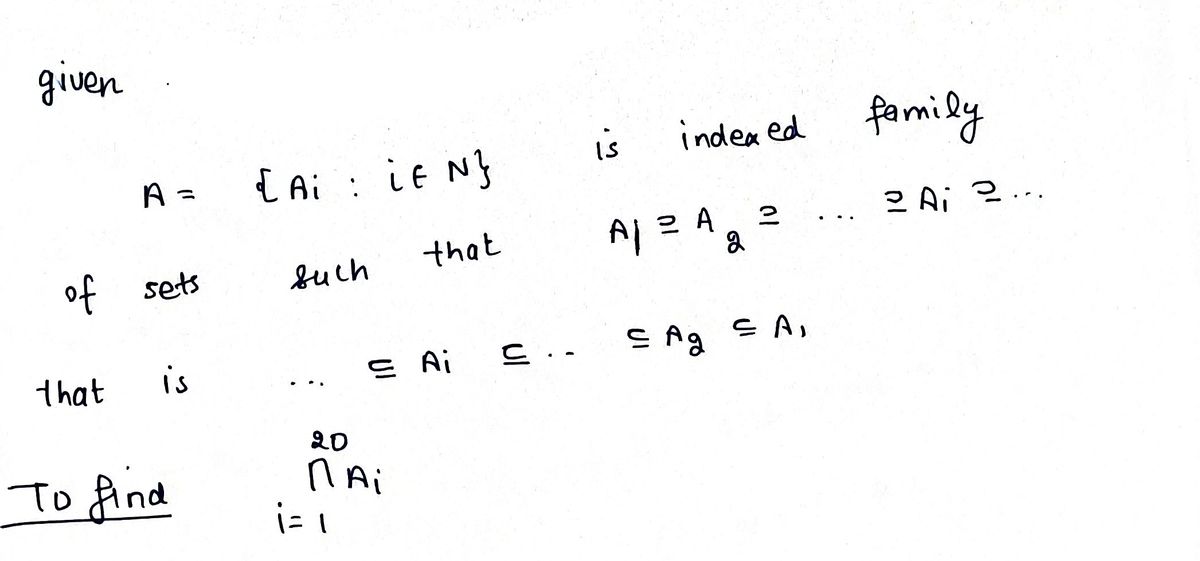 given
A = {Ai : i ∈ N} is indexed family
of sets such that A1 ⊇ A2 ⊇ ... ⊇ Ai ⊇ ...
that is ... ⊆ Ai ⊆ .. ⊆ A2 ⊆ A1
To find 20 ∩ Ai i = 1